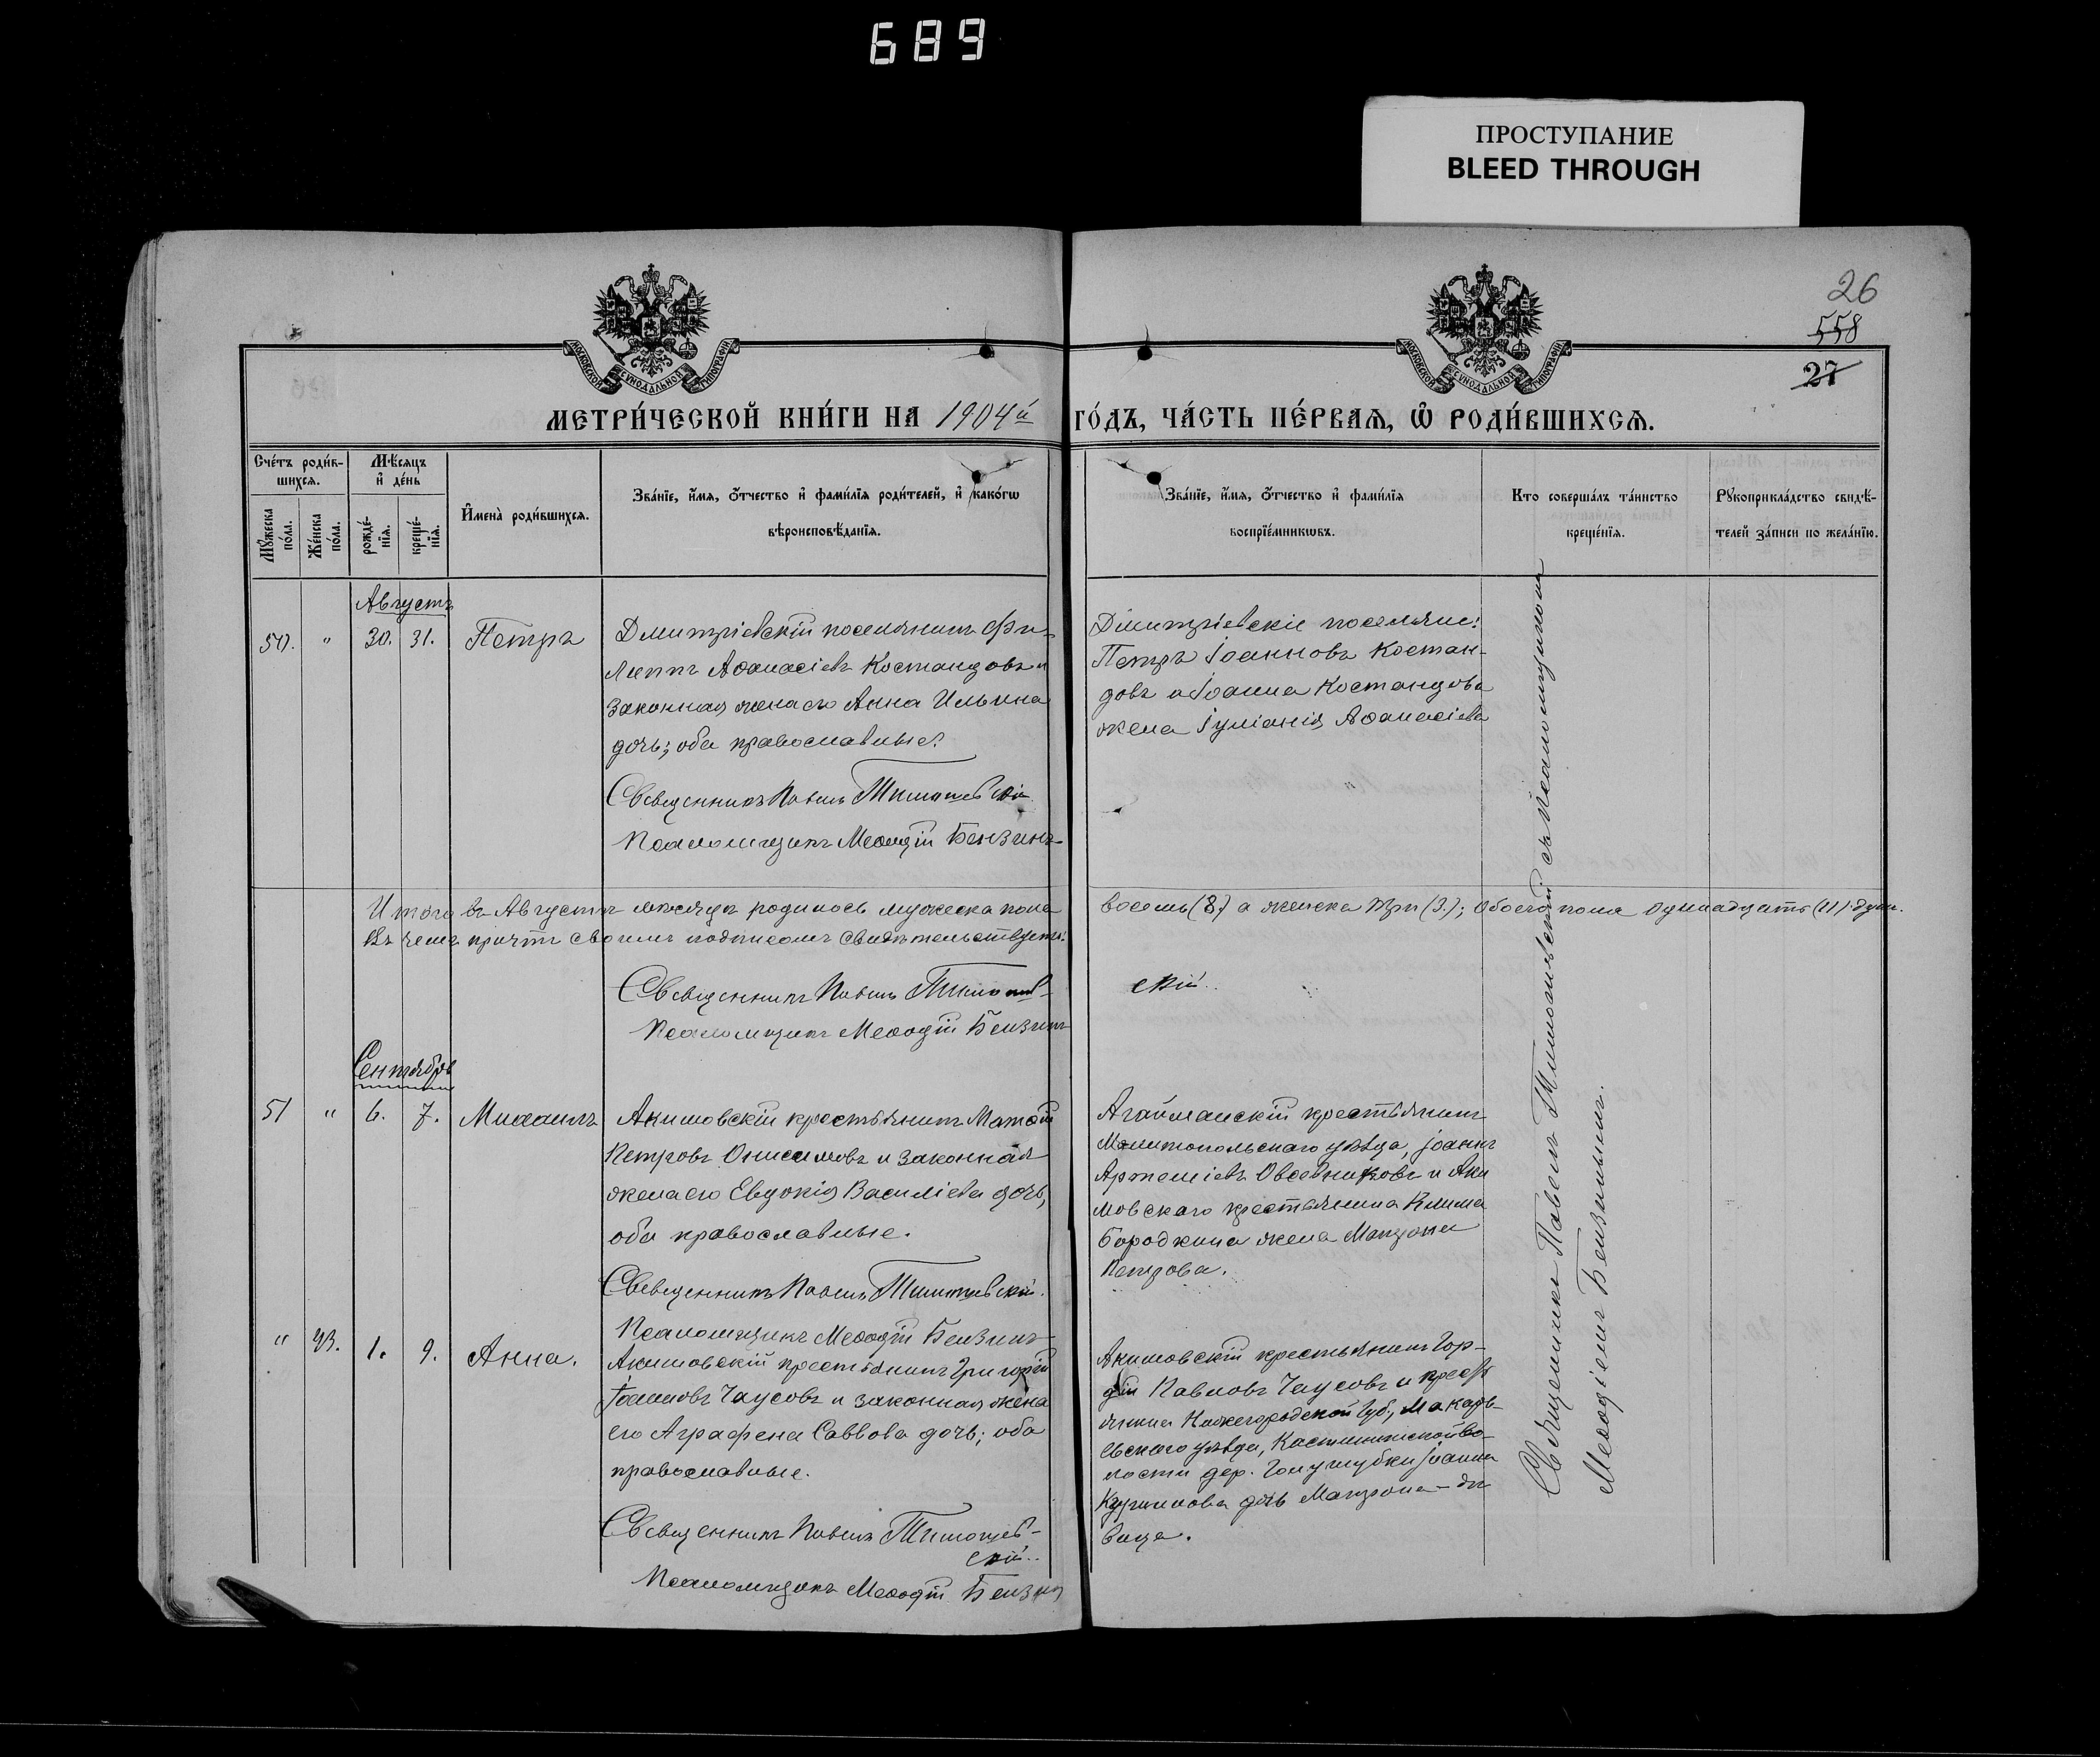 689
ПРОСТУПАНИЕ
BLEED THROUGH
26
558
27
МОСКОВСКОЙ СѴНОДАЛЬНОЙ ТИПОГРАФІИ
МОСКОВСКОЙ СѴНОДАЛЬНОЙ ТИПОГРАФІИ
МЕТРИ́ЧЕСКОЙ КНИ́ГИ НА 1904й ГО́ДЪ, ЧА́СТЬ ПЕ́РВАѦ, Ѽ РОДИ́ВШИХСѦ.
Сче́тъ роди́в-
шихся.
Мꙋ́жеска по́ла.
Же́нска по́ла.
Мѣ́сяцъ
и҆ де́нь
рожде́-
нїя.
креще́-
нїя.
И҆мена̀ роди́вшихся.
Зва́нїе, и҆́мя, ѻ҆́тчество и҆ фами́лїя роди́телей, и҆ како́гѡ
вѣроисповѣ́данїя.
Зва́нїе, и҆́мя, ѻ҆́тчество и҆ фами́лїя
воспрїе́мникѡвъ.
Кто соверша́лъ та́инство
креще́нїя.
Рꙋкоприкла́дство свидѣ́-
телей за́писи по жела́нїю.
Августъ
50. " 30. 31. Петръ
Дмитріевскій поселянинъ Фи-
липпъ Аѳанасіевъ Костандовъ и
законная жена его Анна Ильина
дочь; оба православные.
Священникъ Павелъ Тимошевскій
Псаломщикъ Меѳодій Бензинъ
Дмитріевскіе поселяне:
Петръ Іоанновъ Костан-
довъ и Іоанна Костандова
жена Іуліанія Аѳанасіева
Итого въ Августѣ мѣсяцѣ родилось мужеска пола восемь (8) а женска три (3.); обоего пола одинадцать (11) душъ.
Въ чемъ причтъ своимъ подписомъ свидѣтельствуетъ:
Священникъ Павелъ Тимошев-
скій.
Псаломщикъ Меѳодій Бензинъ
Сентябрь
51 " 6. 7. Михаилъ
Акимовскій крестьянинъ Матѳій
Петровъ Онисимовъ и законная
жена его Евдокія Василіева дочь,
оба православные.
Священникъ Павелъ Тимошевскій.
Псаломщикъ Меѳодій Бензинъ
Агайманскій крестьянинъ
Мелитопольскаго уѣзда, Іоаннъ
Артеміевъ Овсянниковъ и Аки
мовскаго крестьянина Клима
Бородкина жена Матрона
Петрова.
" 43. 1. 9. Анна.
Акимовскій крестьянинъ Григорій
Іоанновъ Чаусовъ и законная жена
его Аграфена Саввова дочь; оба
православные.
Священникъ Павелъ Тимошев-
скій.
Псаломщикъ Меѳодій Бензин
Акимовскій крестьянинъ Гор-
дій Павловъ Чаусовъ и крест
янина Нижегородской Губ., Макарь-
евскаго уѣзда, во-
лости дер. Іоанна
дочь Матрона - дѣ
вица.
Священникъ Павелъ Тимошевскій съ псаломщикомъ
Меѳодіемъ Бензинымъ.